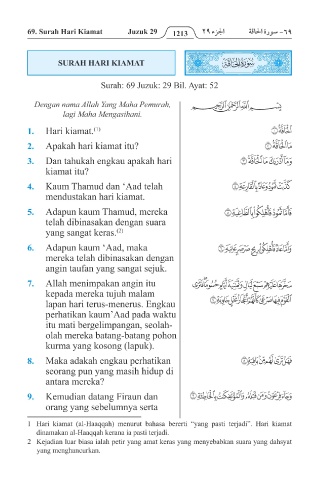 69. Surah Hari Kiamat Juzuk 29 1213 الجزء ٢٩ ٦٩- سورة الحاقة
SURAH HARI KIAMAT
سورة الحاقة
Surah: 69 Juzuk: 29 Bil. Ayat: 52
Dengan nama Allah Yang Maha Pemurah,
lagi Maha Mengasihani.
بسم الله الرحمن الرحيم
1. Hari kiamat.(1)
الحاقة ١
2. Apakah hari kiamat itu?
ما الحاقة ٢
3. Dan tahukah engkau apakah hari
kiamat itu?
وما أدراك ما الحاقة ٣
4. Kaum Thamud dan ‘Aad telah
mendustakan hari kiamat.
كذبت ثمود وعاد بالقارعة ٤
5. Adapun kaum Thamud, mereka
telah dibinasakan dengan suara
yang sangat keras.(2)
فأما ثمود فأهلكوا بالطاغية ٥
6. Adapun kaum ‘Aad, maka
mereka telah dibinasakan dengan
angin taufan yang sangat sejuk.
وأما عاد فأهلكوا بريح صرصر عاتية ٦
7. Allah menimpakan angin itu
kepada mereka tujuh malam
lapan hari terus-menerus. Engkau
perhatikan kaum‘Aad pada waktu
itu mati bergelimpangan, seolah-
olah mereka batang-batang pohon
kurma yang kosong (lapuk).
سخرها عليهم سبع ليال وثمانية أيام حسوما فترى
القوم فيها صرعى كأنهم أعجاز نخل خاوية ٧
8. Maka adakah engkau perhatikan
seorang pun yang masih hidup di
antara mereka?
فهل ترى لهم من باقية ٨
9. Kemudian datang Firaun dan
orang yang sebelumnya serta
وجاء فرعون ومن قبله والمؤتفكات بالخاطئة ٩
1 Hari kiamat (al-Haaqqah) menurut bahasa bererti “yang pasti terjadi”. Hari kiamat
dinamakan al-Haaqqah kerana ia pasti terjadi.
2 Kejadian luar biasa ialah petir yang amat keras yang menyebabkan suara yang dahsyat
yang menghancurkan.